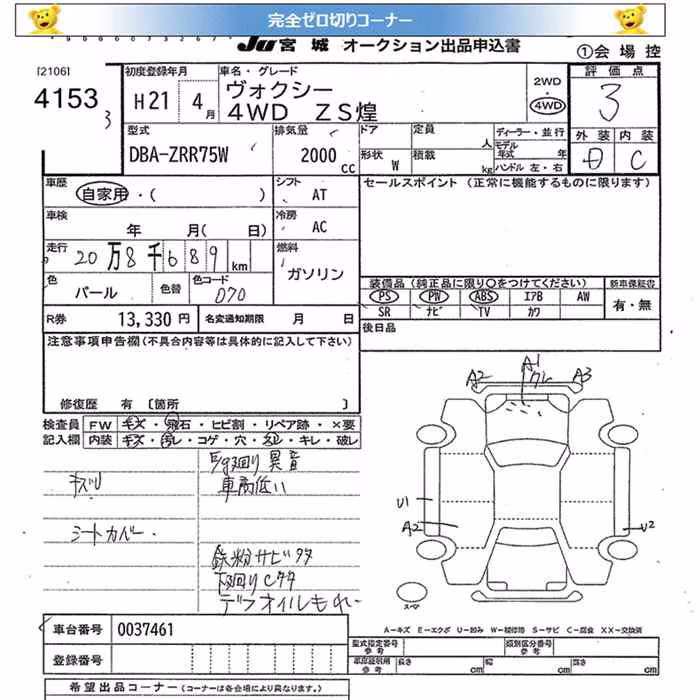 完全ゼロ切りコーナー
JU宮城 オークション出品申込書
①会場控
[2106]
4153
3
初度登録年月
H21 4月
車名・グレード
ヴォクシー
4WD ZS煌
2WD
・
4WD
評価点
3
外装 内装
D C
型式
DBA-ZRR75W
排気量
2000 CC
ドア
定員 人
形状 W
積載 kg
ディーラー・並行
モデル年式 年
ハンドル 左・右
車歴
自家用・( )
シフト
AT
セールスポイント (正常に機能するものに限ります)
車検
年 月( 日)
冷房
AC
走行
20万8千689km
燃料
ガソリン
色
パール
色替
色コード
070
装備品(純正品に限り○をつけてください)
新車保証書
PS PW ABS エアB AW
有・無
SR ナビ TV カワ
R券 13,330 円
名変通知期限 月 日
後日品
注意事項申告欄(不具合内容等は具体的に記入して下さい)
修復歴 有 〔箇所 〕
検査員記入欄
FW キズ・飛石・ヒビ割・リペア跡・×要
内装 キズ・汚レ・コゲ・穴・スレ・キレ・破レ
E/g廻り異音
キズリ
車高低い
シートカバー
鉄粉サビタタ
下廻りCタタ
デフオイルもれ
A2 A1 クレ A3
U1
A2
U2
スペア
A-キズ E-エクボ U-凹み W-補修跡 S-サビ C-腐食 XX-交換済
車台番号 0037461
登録番号
型式指定番号 参考
類別区分番号 参考
車庫証明用 参考
長さ cm
幅 cm
高さ cm
希望出品コーナー (コーナーは各会場により異なります。)